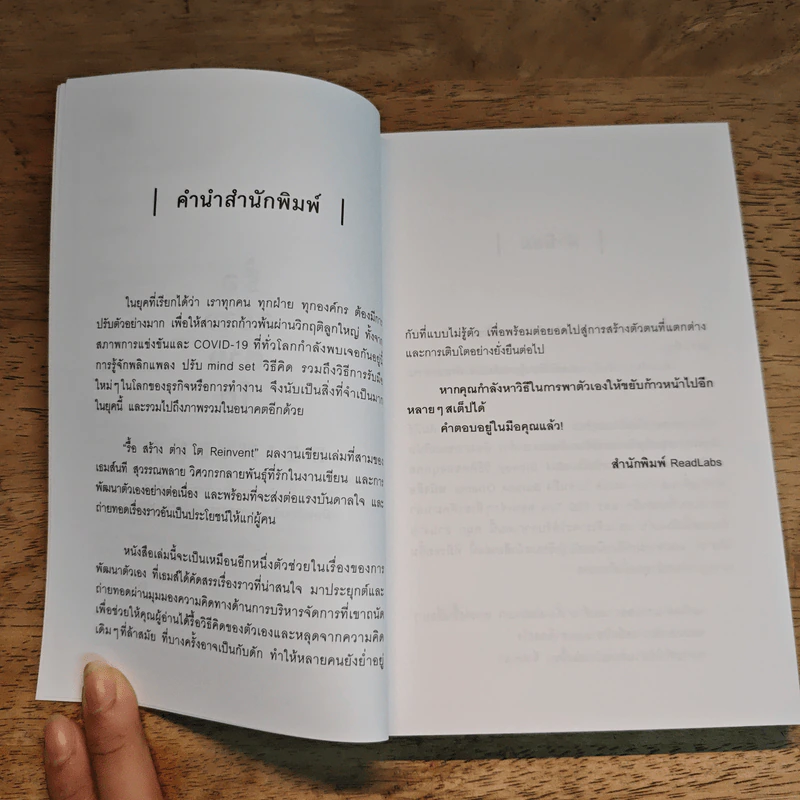 คำนำสำนักพิมพ์
ในยุคที่เรียกได้ว่า เราทุกคน ทุกฝ่าย ทุกองค์กร ต้องมีการ
ปรับตัวอย่างมาก เพื่อให้สามารถก้าวพ้นผ่านวิกฤติลูกใหญ่ ทั้งจาก
สภาพการแข่งขันและ COVID-19 ที่ทั่วโลกกำลังพบเจอกันอยู่นี้
การรู้จักพลิกแพลง ปรับ mind set วิธีคิด รวมถึงวิธีการรับมือ
ใหม่ๆในโลกของธุรกิจหรือการทำงาน จึงนับเป็นสิ่งที่จำเป็นมาก
ในยุคนี้ และรวมไปถึงภาพรวมในอนาคตอีกด้วย
"รื้อ สร้าง ต่าง โต Reinvent" ผลงานเขียนเล่มที่สามของ
เธมส์นที สุวรรณพลาย วิศวกรกลายพันธุ์ที่รักในงานเขียน และการ
พัฒนาตัวเองอย่างต่อเนื่อง และพร้อมที่จะส่งต่อแรงบันดาลใจ และ
ถ่ายทอดเรื่องราวอันเป็นประโยชน์ให้แก่ผู้คน
หนังสือเล่มนี้จะเป็นเหมือนอีกหนึ่งตัวช่วยในเรื่องของการ
พัฒนาตัวเอง ที่เธมส์ได้คัดสรรเรื่องราวที่น่าสนใจ มาประยุกต์และ
ถ่ายทอดผ่านมุมมองความคิดทางด้านการบริหารจัดการที่เขาถนัด
เพื่อช่วยให้คุณผู้อ่านได้รื้อวิธีคิดของตัวเองและหลุดจากความคิด
เดิมๆที่ล้าสมัย ที่บางครั้งอาจเป็นกับดัก ทำให้หลายคนยังย่ำอยู่
กับที่แบบไม่รู้ตัว เพื่อพร้อมต่อยอดไปสู่การสร้างตัวตนที่แตกต่าง
และการเติบโตอย่างยั่งยืนต่อไป
หากคุณกำลังหาวิธีในการพาตัวเองให้ขยับก้าวหน้าไปอีก
หลายๆสเต็ปได้
คำตอบอยู่ในมือคุณแล้ว!
สำนักพิมพ์ ReadLabs